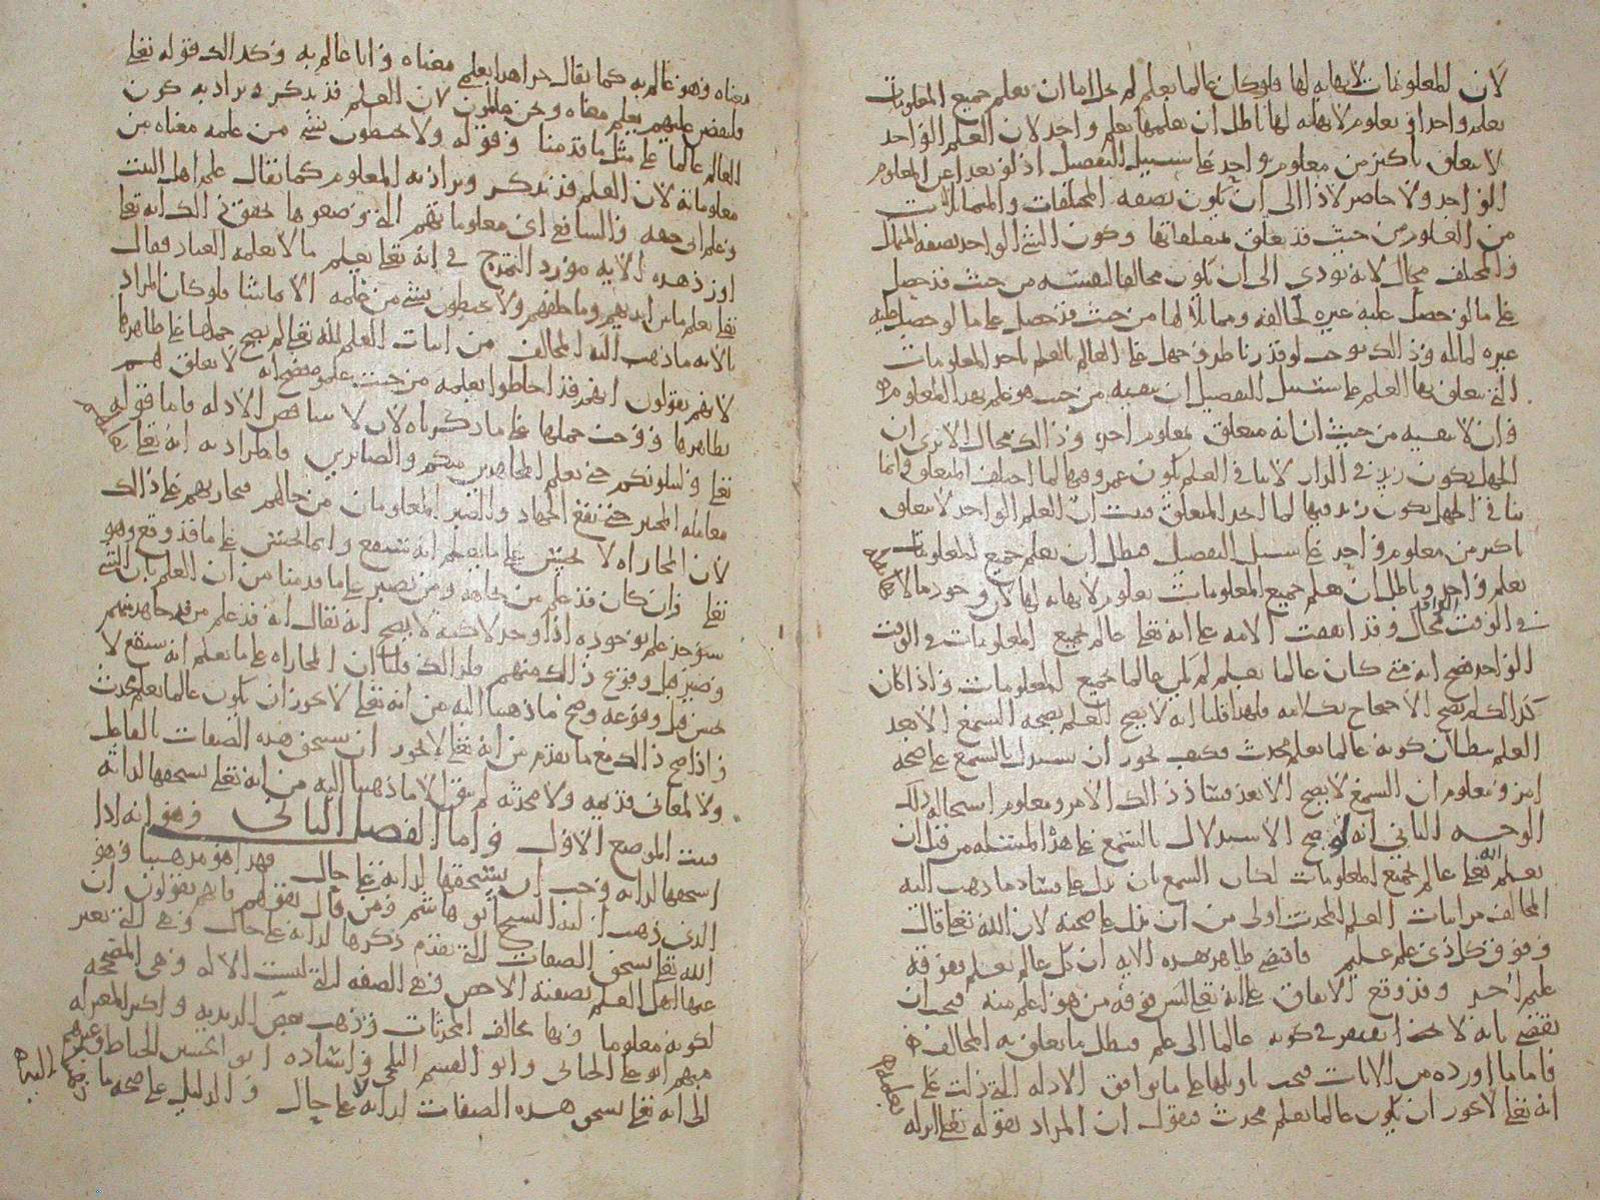 لان المعلومات لا نهايه لها فلو كان عالما بعلم لم يخل اما ان يعلم جميع المعلومات
بعلم واحد او بعلوم لا نهايه لها باطل ان يعلمها بعلم واحد لان العلم الواحد
لا يتعلق باكثر من معلوم واحد على سبيل التفصيل اذ لو تعدا عن المعلوم
الواحد ولا حاصر لاذا الى ان يكون بصفه المختلفات والمتماثلات
من العلوم من حيث قد تعلق بمتعلقاتها وكون الشي الواحد بصفه المماثل
والمختلف محال لانه يودي الى ان يكون مخالفا لنفسه من حيث قد حصل
على ما لو حصل عليه غيره لخالفه ومماثلا لها من حيث قد حصل على ما لو حصل عليه
غيره لماثله وذلك يوجب لو قدرنا طرو جهل على العالم بالعلم باحد المعلومات
التي يتعلق بها العلم على سبيل التفصيل ان ينفيه من حيث هو علم بهذا المعلوم
وان لا ينفيه من حيث ان انه متعلق بمعلوم اخر وذلك محال الا ترى ان
الجهل بكون زيد في الدار لا ينافي العلم بكون عمرو فيها لما اختلف المتعلق وانما
ينافي الجهل بكون زيد فيها لما اتحد المتعلق فثبت ان العلم الواحد لا يتعلق
باكثر من معلوم واحد على سبيل التفصيل فبطل ان يعلم جميع المعلومات
بعلم واحد وباطل ان يعلم جميع المعلومات بعلوم لا نهايه لها لان وجود ما لا
في الوقت الواحد محال وقد اتفقت الامه على انه تعالى عالم بجميع المعلومات في الوقت
الواحد فصح انه متى كان عالما بعلم لم يكن عالما بجميع المعلومات واذا كان
كذلك لم يصح الاحتجاج بكلامه فلهذا قلنا انه لا يصح العلم بصحه السمع الا بعد
العلم ببطلان كونه عالما بعلم محدث فكيف يجوز ان يستدل بالسمع على صحه
امر ومعلوم ان السمع لا يصح الا بعد فساد ذلك الامر ومعلوم استحاله ذلك
الوجه الثاني انه لو صح الاستدلال بالسمع على هذه المسئله من قبل ان
يعلم انه تعالى عالم بجميع المعلومات لكان السمع بان يدل على فساد ما ذهب اليه
المخالف من اثبات العلم المحدث اولى من ان يدل على صحته لان الله تعالى قال
وفوق كل ذي علم عليم فاقتضى ظاهر هذه الايه ان كل عالم بعلم فوقه
عليم اخر وقد وقع الاتفاق على انه تعالى ليس فوقه من هو اعلم منه فيجب ان
يقضى بانه لا يفتقر في كونه عالما الى علم فبطل ما تعلق به المخالف
فاما ما اورده من الايات فيجب تاويلها على ما يوافق الادله التي دلت على
انه تعالى لا يجوز ان يكون عالما بعلم محدث فنقول ان المراد بقوله تعالى انزله
معناه وهو عالم به كما يقال جرا هذا بعلمي معناه وانا عالم به وكذلك قوله تعالى
فلنقصن عليهم بعلم معناه ونحن عالمون لان العلم قد يذكر ويراد به كون
العالم عالما على مثل ما قدمنا وقوله ولا يحيطون بشي من علمه معناه من
معلوماته لان العلم قد يذكر ويراد به المعلوم كما يقال علم اهل البيت
وعلم ابي حنيفه والشافعي اي معلوماتهم التي وضعوها يحقق ذلك انه تعالى
اورد هذه الايه مورد التمدح في انه تعالى يعلم ما لا يعلمه العباد فقال
تعالى يعلم ما بين ايديهم وما خلفهم ولا يحيطون بشي من علمه الا بما شا فلو كان المراد
بالايه ما ذهب اليه المخالف من اثبات العلم لله تعالى لم يصح حملها على ظاهرها
لانهم يقولون انهم قد احاطوا بعلمه من حيث لا تعلق لهم
بظاهرها ووجب حملها على ما ذكرناه لان لا يتناقض الادله واما قوله
تعالى ولنبلونكم حتى نعلم المجاهدين منكم والصابرين فالمراد به انه تعالى
معامله المختبر حتى يقع الجهاد والصبر المعلومان من حالهم فيجازيهم على ذلك
لان المجازاه لا تحسن على ما يعلم انه سيقع وانما تحسن على ما قد وقع وهو
تعالى وان كان قد علم من يجاهد ومن يصبر على ما قدمنا من ان العلم بان الشي
سيوجد علم بوجوده اذا وجد لاكنه لا يصح انه يقال انه قد علم من قد جاهد منهم
وصبر قبل وقوع ذلك منهم فلذلك قلنا ان المجازاه على ما يعلم انه سيقع لا
تحسن قبل وقوعه وصح ما ذهبنا اليه من انه تعالى لا يجوز ان يكون عالما بعلم محدث
واذا صح ذلك مع ما تقدم من انه تعالى لا يجوز ان يستحق هذه الصفات بالفاعل
ولا لمعاني قديمه ولا محدثه لم يبق الا ما ذهبنا اليه من انه تعالى يستحقها لذاته
فثبت الموضع الاول واما الفصل الثاني وهو انه اذا
استحقها لذاته وجب ان يستحقها لذاته على حال فهذا هو مذهبنا وهو
الذي ذهب اليه الشيخ ابو هاشم ومن قال بقولهم فانهم يقولون ان
الله تعالى يستحق الصفات التي تقدم ذكرها لذاته على حال وهي التي يعبر
عنها اهل العلم بصفته الاخص وهي الصفه التي ليست الا له وهي المصححه
لكونه معلوما وبها يخالف المحدثات وذهب بعض الزيديه واكثر المعتزله
منهم ابو علي الجبائي وابو القسم البلخي واستاذه ابو الحسين الخياط وغيرهم
الى انه تعالى يستحق هذه الصفات لذاته لا على حال والدليل على صحه ما ذهبنا اليه